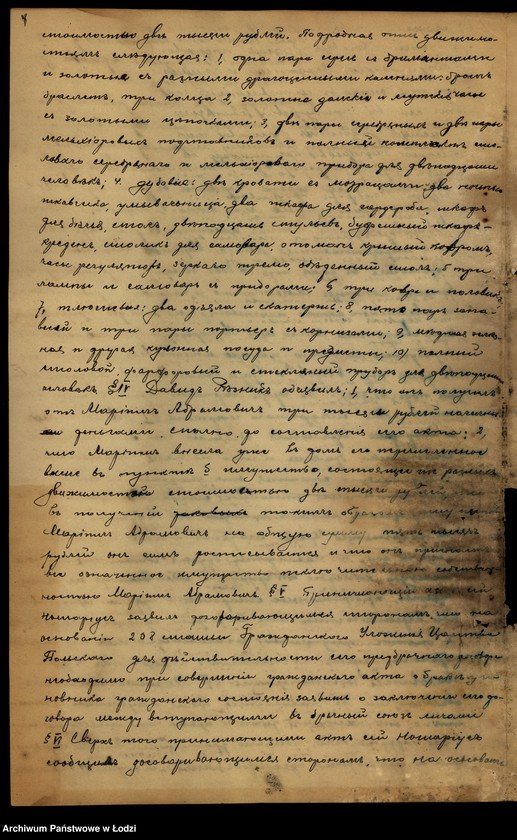 4
стоимостью двѣ тысячи рублей. Подробная опись движимо-
стямъ слѣдующая: 1, одна пара серегъ съ брилiантами
и золотыя съ разными драгоцѣнными камнями: брошь
браслетъ, три кольца 2, золотые дамскiе и мужскiе часы
съ золотыми цѣпочками; 3, двѣ пары серебряныхъ и двѣ пары
мельхiоровыхъ подсвѣчниковъ и полный комплектъ сто-
ловаго серебрянаго и мельхiороваго прибора для двѣнадцати
человѣкъ; 4. дубовые: двѣ кровати съ матрацами, два ночныхъ
шкапчика, умывальница, два шкафа для гардероба, шкафъ
для бѣлья, столъ, двѣнадцать стульевъ, буфетный шкафъ-
креденсъ, столикъ для самовара, отоманъ крытый ковромъ
часы регуляторъ, зеркало тремо, обѣденный столъ; 5 три
лампы и самоваръ съ приборами; 6 три ковра и половикъ
7, плюшевыя: два одѣяла и скатерть; 8, пять паръ зана-
вѣсей и три пары портьеръ съ карнизами; 9, мѣдная
ная и другая кухонная посуда и предметы; 10, полный
столовой, фарфоровый и стеклянный приборъ для двѣнадцати
человѣкъ § IV Давидъ Розникъ объявилъ; 1, что онъ получилъ
отъ Марiемъ Абрамовичъ три тысячи рублей наличны-
ми деньгами сполна, до составленiя сего акта; 2,
что Марiемъ внесла уже въ домъ его перечисленное
выше въ пунктѣ § имущество, состоящее изъ разныхъ
движимостей стоимостью двѣ тысячи рублей
въ полученiи таковыхъ такимъ образомъ
Марiемъ Абрамовичъ на общую сумму пять тысячъ
рублей онъ симъ росписывается и что онъ признаетъ
все означенное имущество исключительною собствен-
ностью Марiемъ Абрамовичъ. § V Принимающiй актъ сей
нотарiусъ заявилъ договаривающимся сторонамъ, что на
основанiи 208 статьи Гражданскаго Уложенiя Царства
Польскаго для дѣйствительности сего предбрачнаго договора
необходимо при совершенiи гражданскаго акта о бракѣ
новника гражданскаго состоянiя заявить о заключенiи сего до-
говора между вступающими въ брачный союзъ лицами
§ VI Сверхъ того принимающiй актъ сей Нотарiусъ
сообщилъ договаривающимся сторонамъ, что на основанiи
Archiwum Państwowe w Łodzi